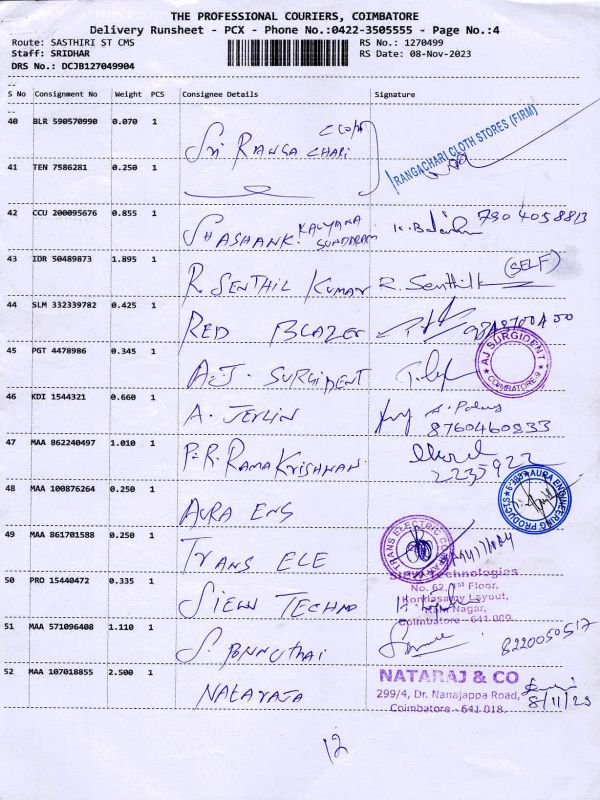 THE PROFESSIONAL COURIERS, COIMBATORE
Delivery Runsheet - PCX - Phone No.:0422-3505555 - Page No.:4
Route: SASTHIRI ST CMS RS No.: 1270499
Staff: SRIDHAR RS Date: 08-Nov-2023
DRS No.: DCJB127049904
S No Consignment No Weight PCS Consignee Details Signature
40 BLR 590570990 0.070 1 Sri RANGA CHARI RANGACHARI CLOTH STORES (FIRM)
41 TEN 7586281 0.250 1
42 CCU 200095676 0.855 1 SHASHANK. KALYANA SUNDARAM
43 IDR 50489873 1.895 1 R. SENTHIL KUMAR R. Senthilk (SELF)
44 SLM 332339782 0.425 1 RED BLAZER
45 PGT 4478986 0.345 1 A.J. SURGIDENT AJ SURGIDENT COIMBATORE-9
46 KDI 1544321 0.660 1 A. JERLIN 8760460833
47 MAA 862240497 1.010 1 P.R. RAMAKRISHNAN 2235922
48 MAA 100876264 0.250 1 AURA ENG AURA ENGINEERING PRODUCTS
49 MAA 861701588 0.250 1 TRANS ELE TRANS ELECTRIC
50 PRO 15440472 0.335 1 SIEWN TECHNO Technologies
No. 62, 1st Floor,
Kondasamy Layout,
Ram Nagar,
Coimbatore - 641 009.
51 MAA 571096408 1.110 1 S. PONNUTHAI 8220050517
52 MAA 107018855 2.500 1 NATARAJA NATARAJ & CO
299/4, Dr. Nanajappa Road,
Coimbatore - 641 018. 8/11/23
12